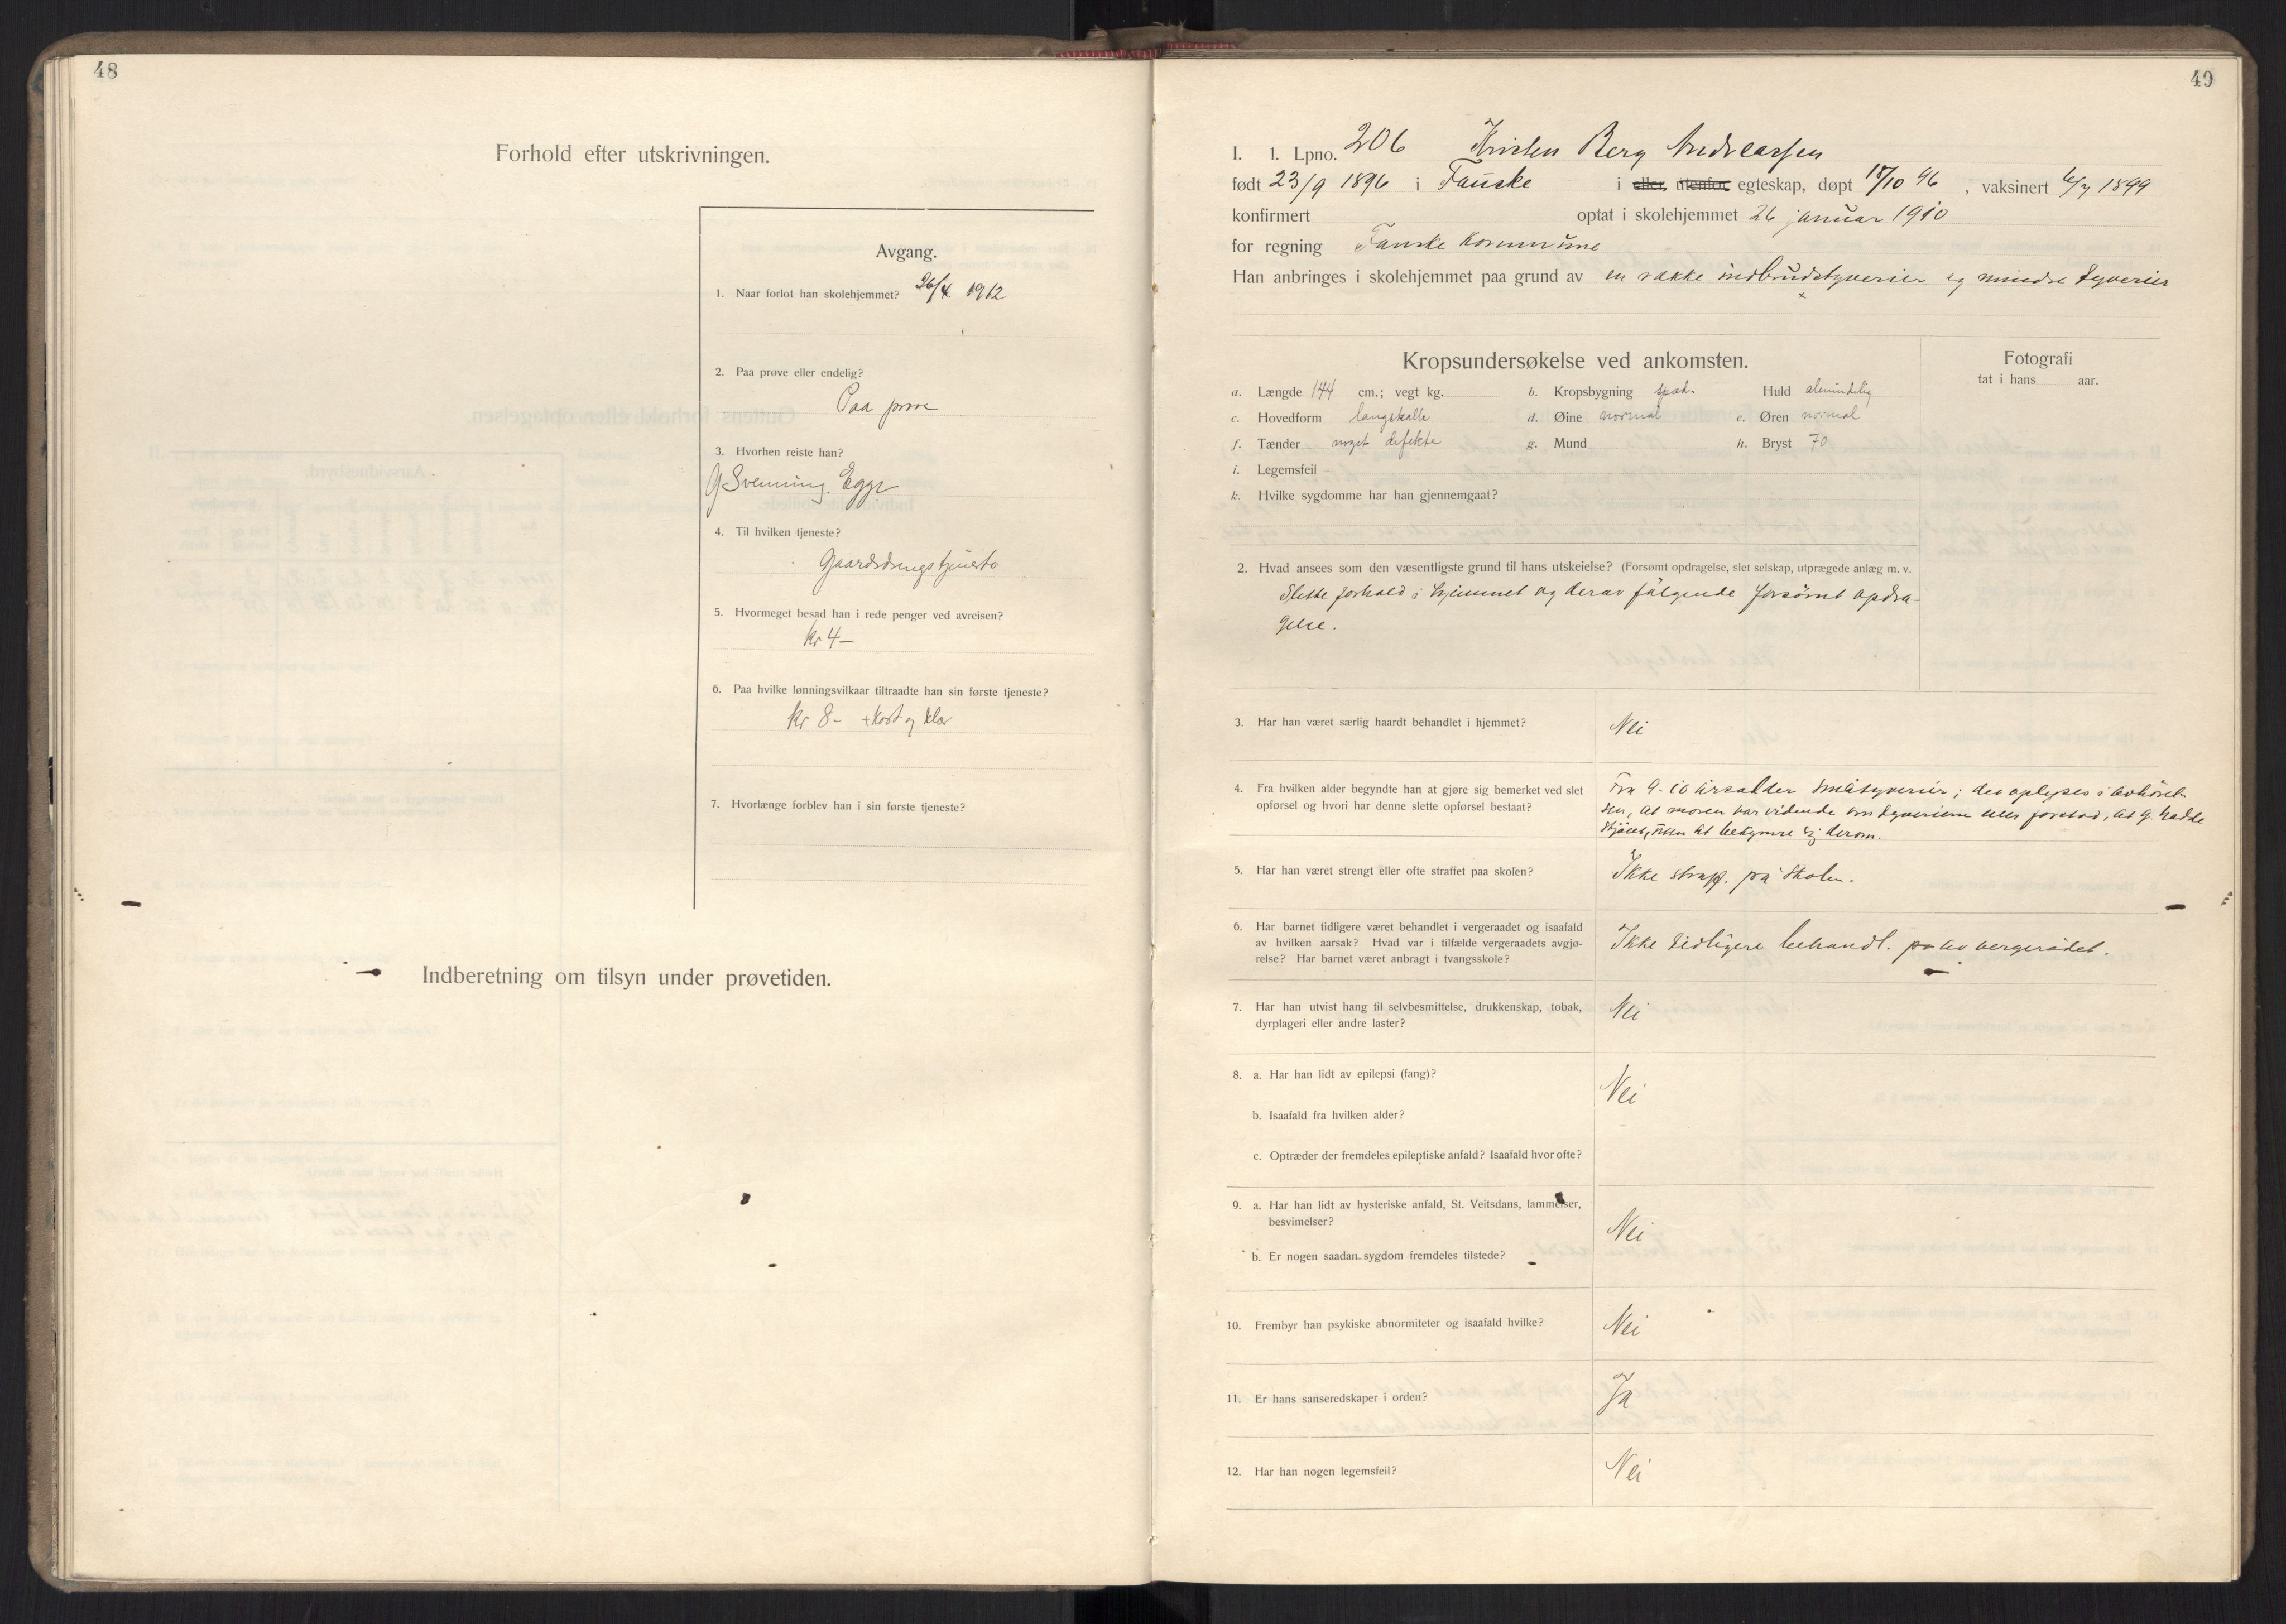 48
Forhold efter utskrivningen.
Avgang.
1. Naar forlot han skolehjemmet? 26/4 1912
2. Paa prøve eller endelig?
Paa prøve
3. Hvorhen reiste han?
G Svenning. Egge
4. Til hvilken tjeneste?
Gaardsdrengstjeneste
5. Hvormeget besad han i rede penger ved avreisen?
Kr 4-
6. Paa hvilke lønningsvilkaar tiltraadte han sin første tjeneste?
Kr 8- + kost og klær
7. Hvorlænge forblev han i sin første tjeneste?
Indberetning om tilsyn under prøvetiden.
49
I. 1. Lpno. 206 Kristen Berg Andreassen
født 23/9 1896 i Fauske i eller utenfor egteskap, døpt 18/10 96, vaksinert 6/7 1899
konfirmert optat i skolehjemmet 26 januar 1910
for regning Fauske kommune
Han anbringes i skolehjemmet paa grund av en række indbrudstyverier og mindre tyverier
Kropsundersøkelse ved ankomsten.
Fotografi
tat i hans aar.
a. Længde 144 cm.; vegt kg. b. Kropsbygning spæd. Huld almindelig
c. Hovedform langskalle d. Øine normal e. Øren normal
f. Tænder noget defekte g. Mund h. Bryst 70
i. Legemsfeil -
k. Hvilke sygdomme har han gjennemgaat?
2. Hvad ansees som den væsentligste grund til hans utskeielse? (Forsømt opdragelse, slet selskap, utprægede anlæg m. v.
Slette forhold i hjemmet og derav følgende forsømt opdra-
gelse.
3. Har han været særlig haardt behandlet i hjemmet? Nei
4. Fra hvilken alder begyndte han at gjøre sig bemerket ved slet
opførsel og hvori har denne slette opførsel bestaat?
Fra 9-10 årsalder småtyverier; det oplyses i avhørel-
sen, at moren var vidende om tyverierne eller forstod, at g. hadde
stjålet, uten at bekymre sig derom.
5. Har han været strengt eller ofte straffet paa skolen? Ikke straff. på skolen.
6. Har barnet tidligere været behandlet i vergeraadet og isaafald
av hvilken aarsak? Hvad var i tilfælde vergeraadets avgjø-
relse? Har barnet været anbragt i tvangsskole?
Ikke tidligere behandl. på av vergerådet.
7. Har han utvist hang til selvbesmittelse, drukkenskap, tobak,
dyrplageri eller andre laster?
Nei
8. a. Har han lidt av epilepsi (fang)?
Nei
b. Isaafald fra hvilken alder?
c. Optræder der fremdeles epileptiske anfald? Isaafald hvor ofte?
9. a. Har han lidt av hysteriske anfald, St. Veitsdans, lammelser,
besvimelser?
Nei
b. Er nogen saadan sygdom fremdeles tilstede?
10. Frembyr han psykiske abnormiteter og isaafald hvilke? Nei
11. Er hans sanseredskaper i orden? Ja
12. Har han nogen legemsfeil? Nei